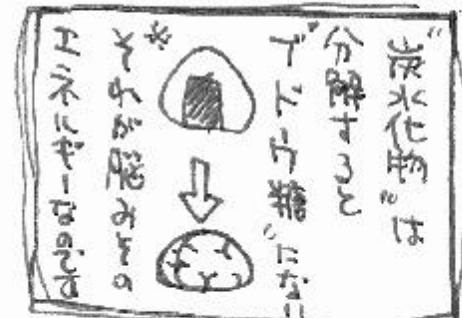 “炭水化物”は
分解すると
“ブドウ糖”になり
それが脳みその
エネルギーなのです